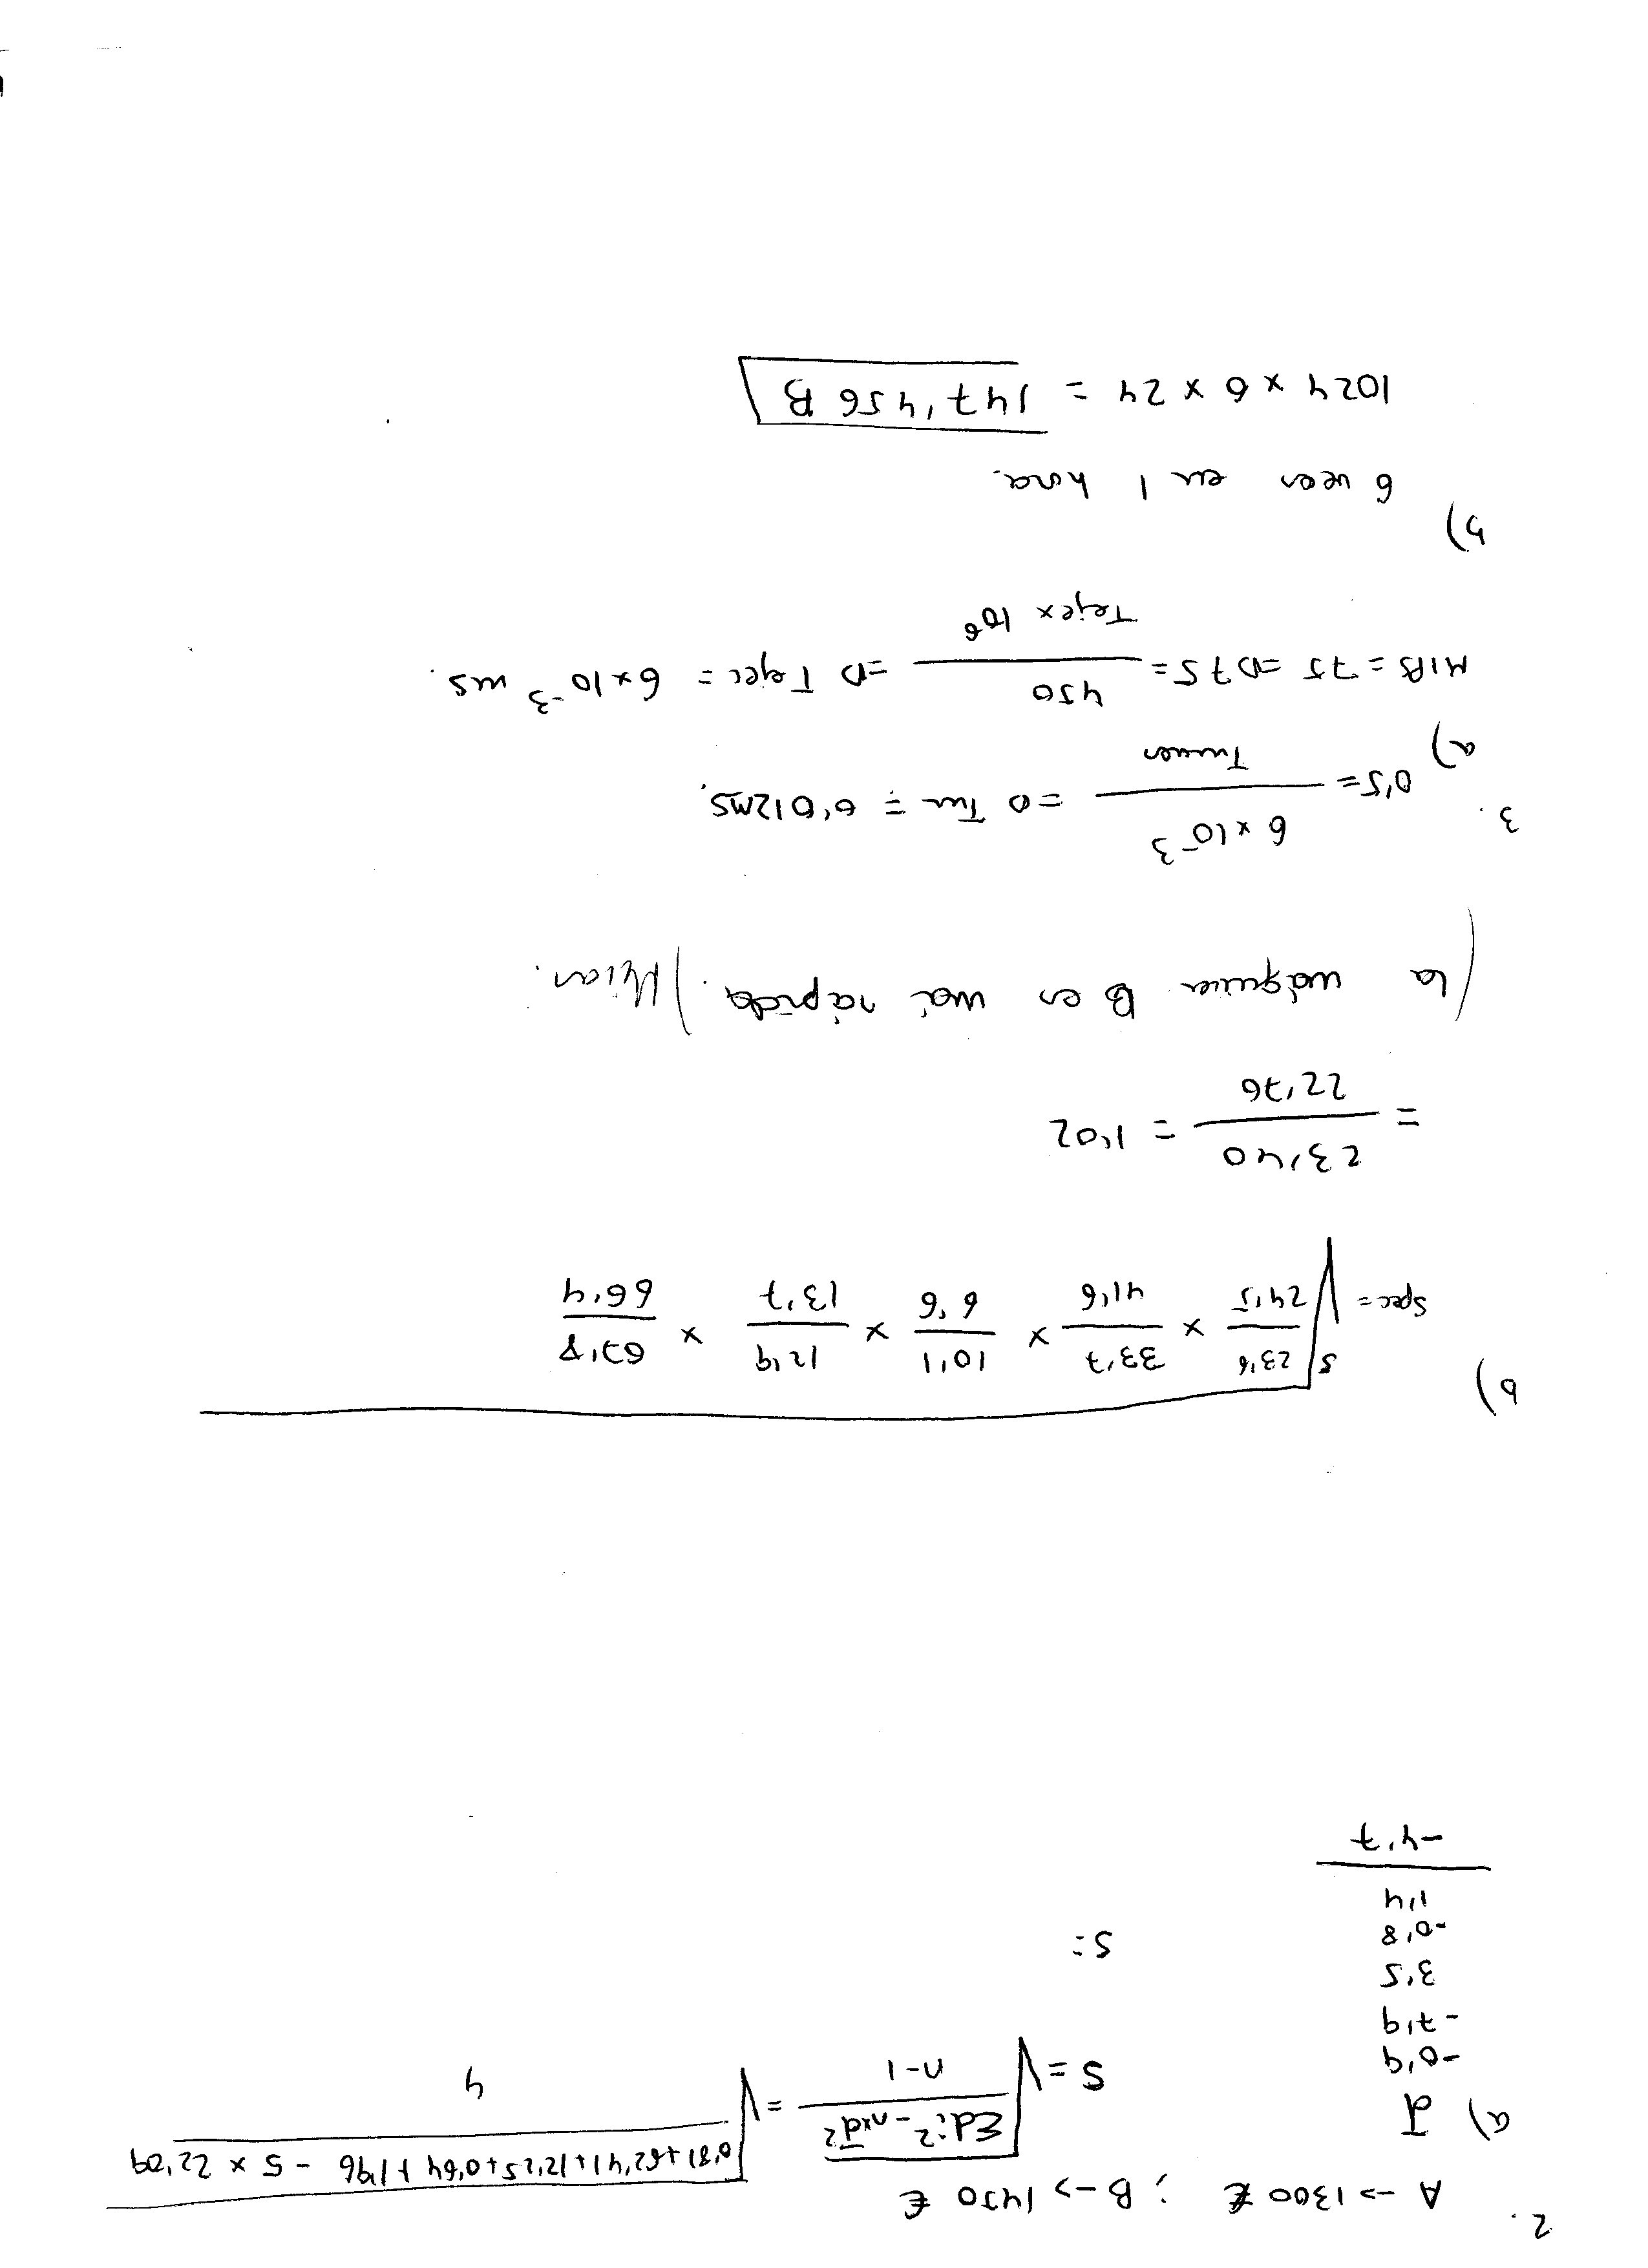 2.
A -> 1300 € ; B -> 1450 €
a) d̄
-0'9
-7'9
3'5
-0'8
1'4
-4'7
S = √((Σdi² - n×d̄²)/(n-1)) = √((0'81+62'41+12'25+0'64+1'96 - 5 × 22'09)/4)
S=
b)
Spec = ⁵√(23'6/24'5 × 33'7/41'6 × 10'1/6'6 × 12'9/13'7 × 67'8/66'4)
= 23'40/22'76 = 1'02
(La máquina B es má rápida.) Mirar.
3.
a) 0'5 = 6×10⁻³/Tmues => Tm = 0'012ms.
MIPS = 75 => 75 = 450/(Teje× 10⁶) => Tejec = 6×10⁻³ ms.
b)
6 veces en 1 hora.
1024 × 6 × 24 = 147'456 B